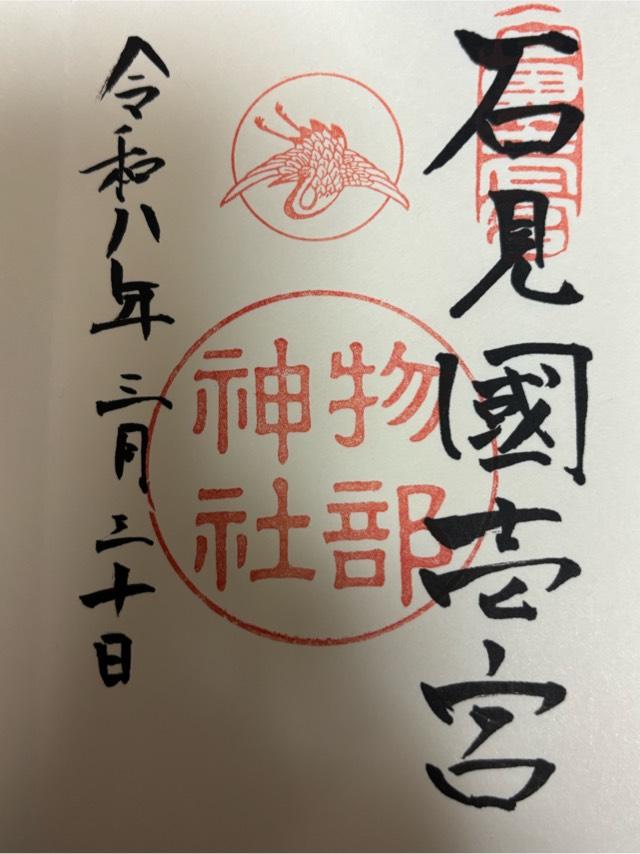 石見國壱宮
物部
神社
令和八年三月三十日